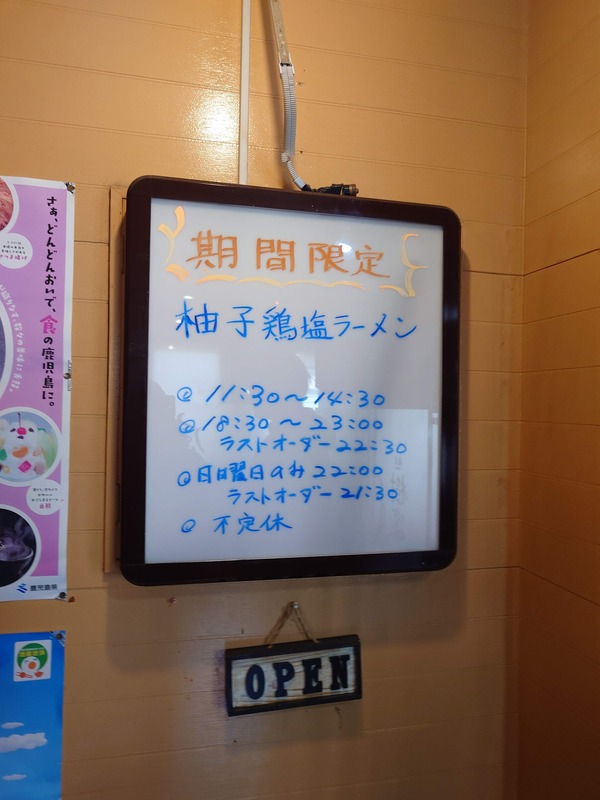 期間限定
柚子鶏塩ラーメン
@ 11:30〜14:30
@ 18:30〜23:00
ラストオーダー 22:30
@ 日曜日のみ 22:00
ラストオーダー 21:30
@ 不定休
OPEN
さぁ、どんどんおいで、食の鹿児島に。
鹿児島県